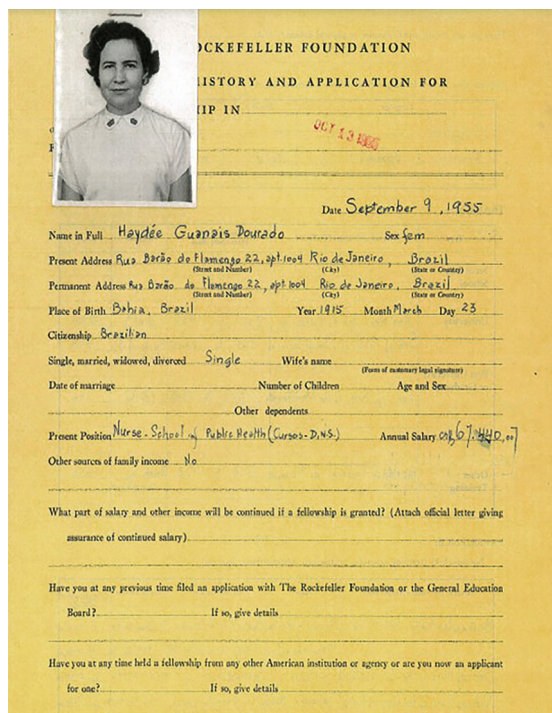 OCKEFELLER FOUNDATION
HISTORY AND APPLICATION FOR
HIP IN
OCT 13 1955
Date September 9, 1955
Name in Full Haydée Guanais Dourado Sex fem
Present Address Rua Barão do Flamengo 22, apt. 1004 Rio de Janeiro, Brazil
(Street and Number) (City) (State or Country)
Permanent Address Rua Barão do Flamengo 22, apt 1004 Rio de Janeiro, Brazil
(Street and Number) (City) (State or Country)
Place of Birth Bahia, Brazil Year 1915 Month March Day 23
Citizenship Brazilian
Single, married, widowed, divorced Single Wife's name
(Form of customary legal signature)
Date of marriage Number of Children Age and Sex
Other dependents
Present Position Nurse - School of Public Health (Cursos - D.N.S.) Annual Salary
Other sources of family income No
What part of salary and other income will be continued if a fellowship is granted? (Attach official letter giving
assurance of continued salary)
Have you at any previous time filed an application with The Rockefeller Foundation or the General Education
Board? If so, give details
Have you at any time held a fellowship from any other American institution or agency or are you now an applicant
for one? If so, give details